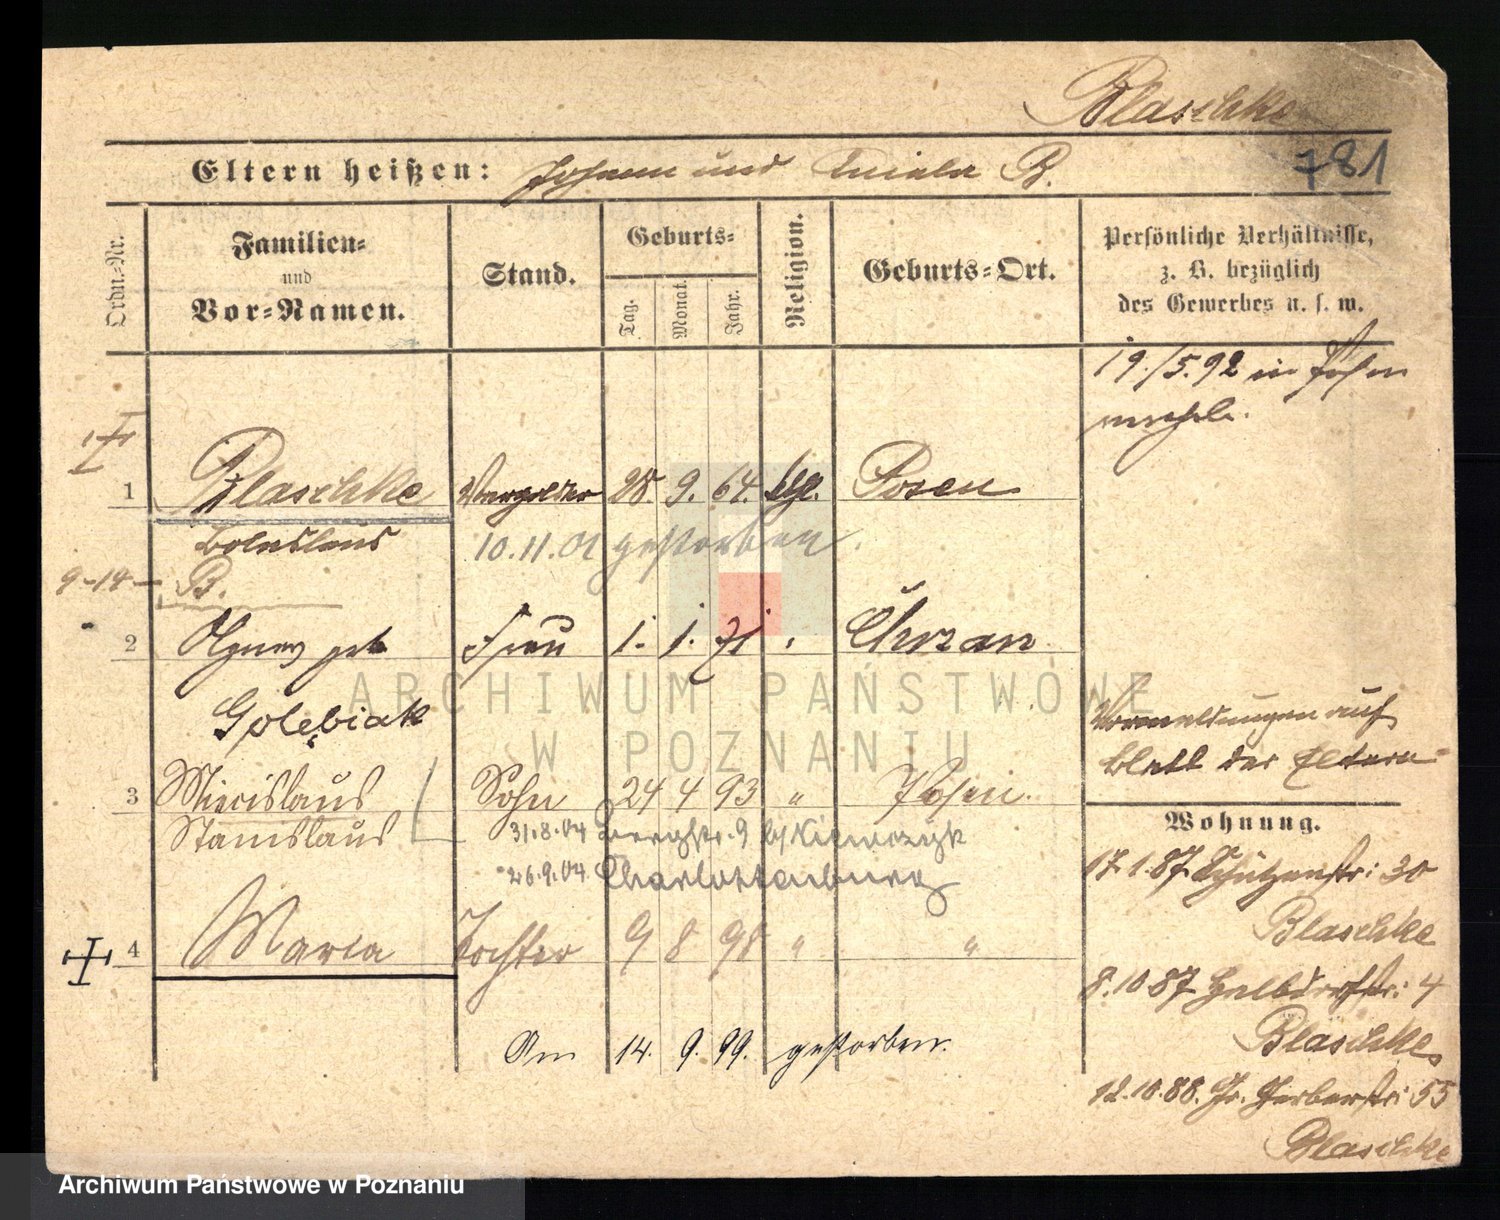 Blaschke
781
Eltern heißen: Johann und B.
Ordn.-Nr.
Familien-
und
Vor-Namen.
Stand.
Geburts-
Tag.
Monat.
Jahr.
Religion.
Geburts-Ort.
Persönliche Verhältnisse,
z. B. bezüglich
des Gewerbes u. s. w.
19./5.92 in
1 Blaschke Vergolder 28. 9. 64. ktl. Posen
Boleslaus 10.11.01 gestorben.
9-14- B.
2 Agnes geb. Frau 1. 1. 71 " Chrzan
Golębiak
Vormeldungen auf
Blatt der Eltern
3 Miecislaus Sohn 24 4 93 " Posen.
Stanislaus 31.8.04 9 b/
26.9.04 Charlottenburg
Wohnung.
17.1.87. Schützenstr: 30
Blaschke
4 Maria Tochter 9 8 98 " "
8.10.87 Halbdorfstr: 4
Blaschke
Am 14. 9. 99. gestorben.
12.10.88. Gr. Gerberstr: 55
Blaschke
ARCHIWUM PAŃSTWOWE
W POZNANIU
Archiwum Państwowe w Poznaniu